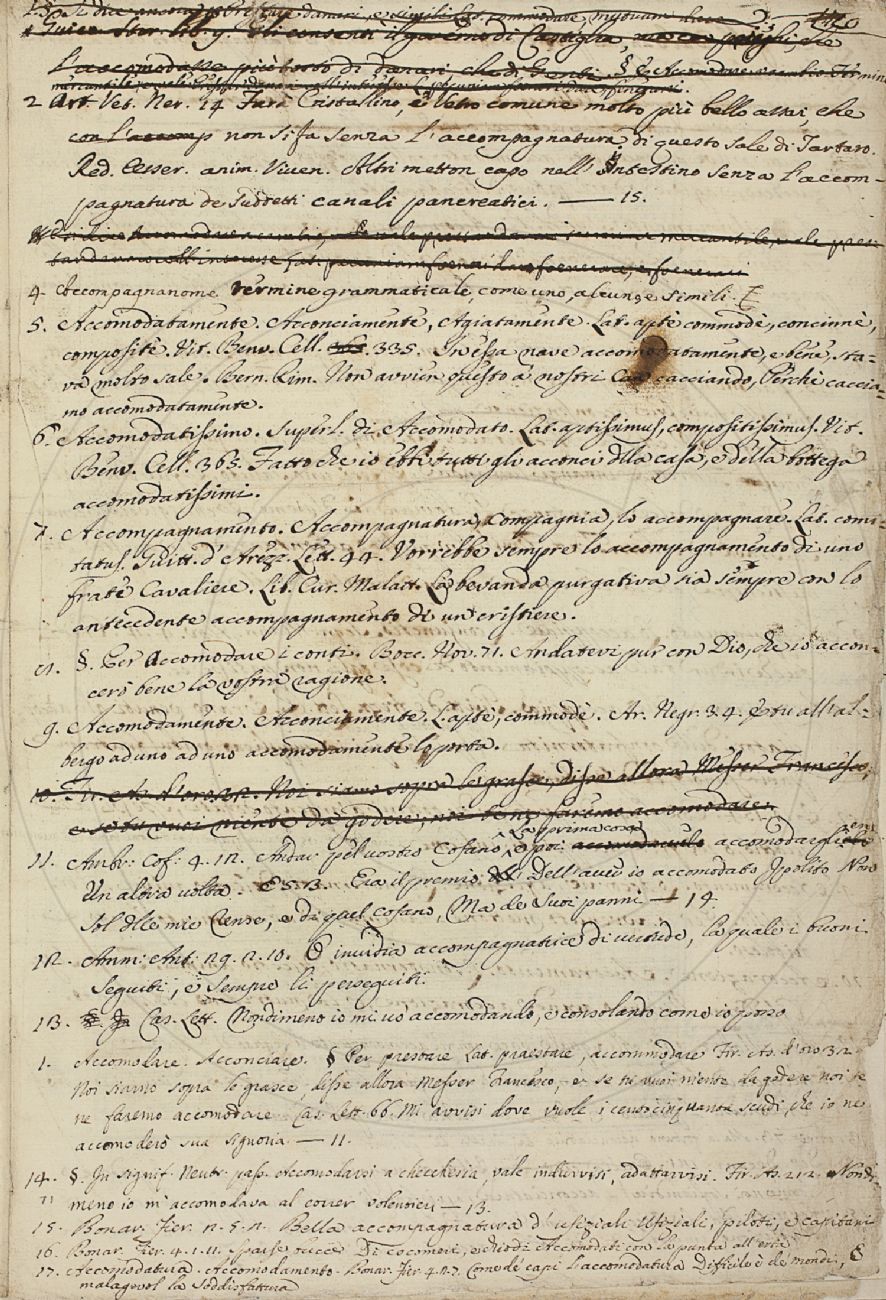 L'accomodasse più tosto di danari che di Gente
2 Art. Vet. Ner. 14 Farà Cristallino, e Vetro comune molto più bello assai, che
con l'accomp non si fa senza l'accompagnatura di questo sale di Tartaro.
Red. Osser. anim. Viven. Altri metton capo nell'Intestino senza l'accom-
pagnatura de suddetti canali pancreatici. — 15.
4. Accompagnanome termine grammaticale, come uno, alcuno, e simili.
5. Accomodatamente. Acconciamente, Agiatamente. Lat. aptè commodè, concinnè,
compositè. Vit. Benv. Cell. 335. In essa nave accomodatamente, e bene, sta-
va molto sale. Bern. Rim. Non avvien questo a nostri cacciando, Perchè caccia-
mo accomodatamente.
6. Accomodatissimo. Superl. di Accomodato. Lat. aptissimus, compositissimus. Vit.
Benv. Cell. 365. Fatto che io ebbi tutti gli acconci dlla casa, e della bottega
accomodatissimi.
7. Accompagnamento. Accompagnatura, compagnia, lo accompagnare. Lat. comi-
tatus. Guitt. d'Arezz. Lett. 44. Vorrebbe sempre lo accompagnamento di uno
frate Cavaliere. Lib. Cur. Malatt. La bevanda purgativa sia sempre con lo
antecedente accompagnamento di un cristiere.
§. Per Accomodare i conti. Bocc. Nov. 71. Andatevi pur con Dio, che io accon-
cerò bene la vostra ragione.
9. Accomodamente. Acconciamente. L. aptè, commodè. Ar. Negr. 3. 4. E tu all'al-
bergo ad uno ad uno accomodamente lo porta.
10. Fir. As. d'oro 32. Noi siamo sopra le grasce, disse allora Messer Francesco,
e se tu vuoi niente da godere, noi te ne faremo accomodare.
11. Ambr: Cof: 4. 12. Andar pel vostro Cofano, La prima cosa e poi accomodargliene
Un altra volta. E 5. 13. Era il premio Dell'aver io accomodato Ippolito Non
Sol dlle mie Cense, e di quel cofano, Ma de suoi panni — 14.
12. Amm: Ant: 29. 2. 10. O invidia accompagnatrice di virtude, la quale i buoni
Seguiti, e sempre li perseguiti.
13. Cas. Lett. Nondimeno io mi vò accomodando, e consolando come io posso
1. Accomodare. Acconciare. § Per prestare Lat. praestare, accommodare Fir. As. d'oro 32.
Noi siamo sopra le grasce, disse allora Messer Francesco, e se tu vuoi niente da godere noi te
ne faremo accomodare Cas. Lett. 66. Mi avvisi dove vuole i censocinquanta scudi, che io ne
accomoderò sua signoria — 11.
14. §. In signif. Neutr. pass. Accomodarsi a checchesia, vale indurvisi, adattarvisi. Fir. As. 212. Nondi
meno io m'accomodava al correr volentieri — 13.
15. Bonar. Fier. 2. 5. 2. Bella accompagnatura d'Ufiziali, piloti, e capitani
16. Bonar. Fier. 4. 1. 11. Sparse bucce Di cocomeri, e chiodi Accomodati con la punta all'erta
17. Accomodatura. Accomodamento. Bonar. Fier. 4. 2. 7. Come de' capi l'accomodatura Difficile è de' mondi, E
malagevol la soddisfattura